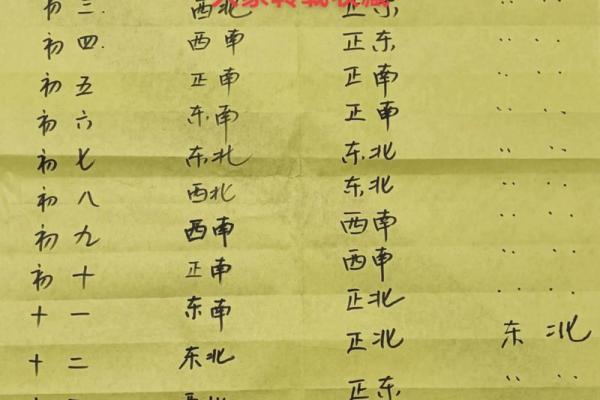 初三. 西北 正东
初四. 西南 正东 ‥ ‥
初五 正南 正南 ‥ ‥
初六 东南 正南 ‥ ‥
初七 东北 东北 ‥ ‥
初八 西北 东北 ‥ ‥
初九 西南 西南 ‥ ‥
初十 正南 西南 ‥ ‥
十一 东南 正北 ‥ ‥
十二 东北 正北 东北
正东 ‥ ‥